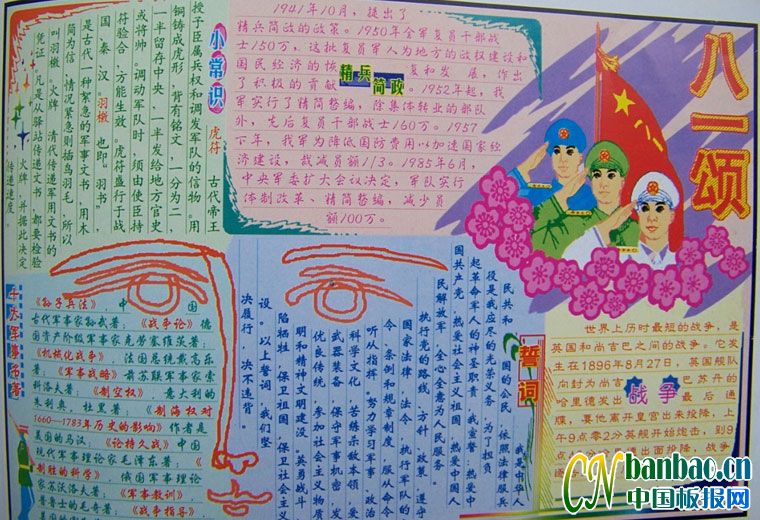 八一颂
1941年10月，提出了
精兵简政的政策。1950年全军复员干部战
士150万，这批复员军人为地方的政权建设和
国民经济的恢复和发展，作出
了积极的贡献。1952年起，我
军实行了精简整编，除集体转业的部队
外，先后复员干部战士160万。1957
下年，我军为降低国防费用以加速国家经
济建设，裁减员额1/3。1985年6月，
中央军委扩大会议决定，军队实行
体制改革、精简整编，减少员
额100万。
精兵简政
小常识
虎符 古代帝王
授于臣属兵权和调发军队的信物。用
铜铸成虎形，背有铭文，一分为二，
一半留存中央，一半发给地方官吏
或将帅。调动军队时，须由使臣持
符验合，方能生效。虎符盛行于战
国秦汉。羽檄 也即羽书
是古代一种紧急的军事文书，用木
简为信，情况紧急则插鸟羽毛，所以
叫羽檄。火牌 清代传递军用文书的
凭证，凡是从驿站传递文书，都要检验
火牌，并据此决定
传递速度。
誓词
我是中华人
民共和国的公民，依照法律服兵
役是我应尽的光荣义务，为了担负
起革命军人的神圣职责，我宣誓：热爱中
国共产党，热爱社会主义祖国，热爱中国人
民解放军，全心全意为人民服务
执行党的路线、方针、政策，遵守
国家法律、法令，执行军队的
命令、条例和规章制度，服从命令
听从指挥，努力学习军事、政治
科学文化，苦练杀敌本领，爱护
武器装备，保守军事机密，发扬
优良传统，参加社会主义物质文
明和精神文明建设，英勇战斗
保卫祖国，保卫社会主义建
设。以上誓词，我们坚
决履行，决不违背。
《孙子兵法》，中国
古代军事家孙武著；《战争论》德
国资产阶级军事家克劳塞维茨著；
《机械化战争》法国总统戴高乐
著；《军事战略》前苏联军事家索
科洛夫著；《制空权》意大利的
朱利奥，杜黑著；《制海权对
1660—1783年历史的影响》作者是
美国的马汉；《论持久战》中国
现代军事理论家毛泽东著；《
制胜的科学》，俄国军事理论
家苏沃洛夫著；《军事教训》
普鲁士的毛奇著；《战争指导》
战争
世界上历时最短的战争，是
英国和尚吉巴之间的战争。它发
生在1896年8月27日，英国舰队
向封为尚吉巴苏丹的
哈里德发出最后通
牒，要他离开皇宫出来投降，上
午9点零2分英舰开始炮击，到9
CNbanbao.cn
中国板报网